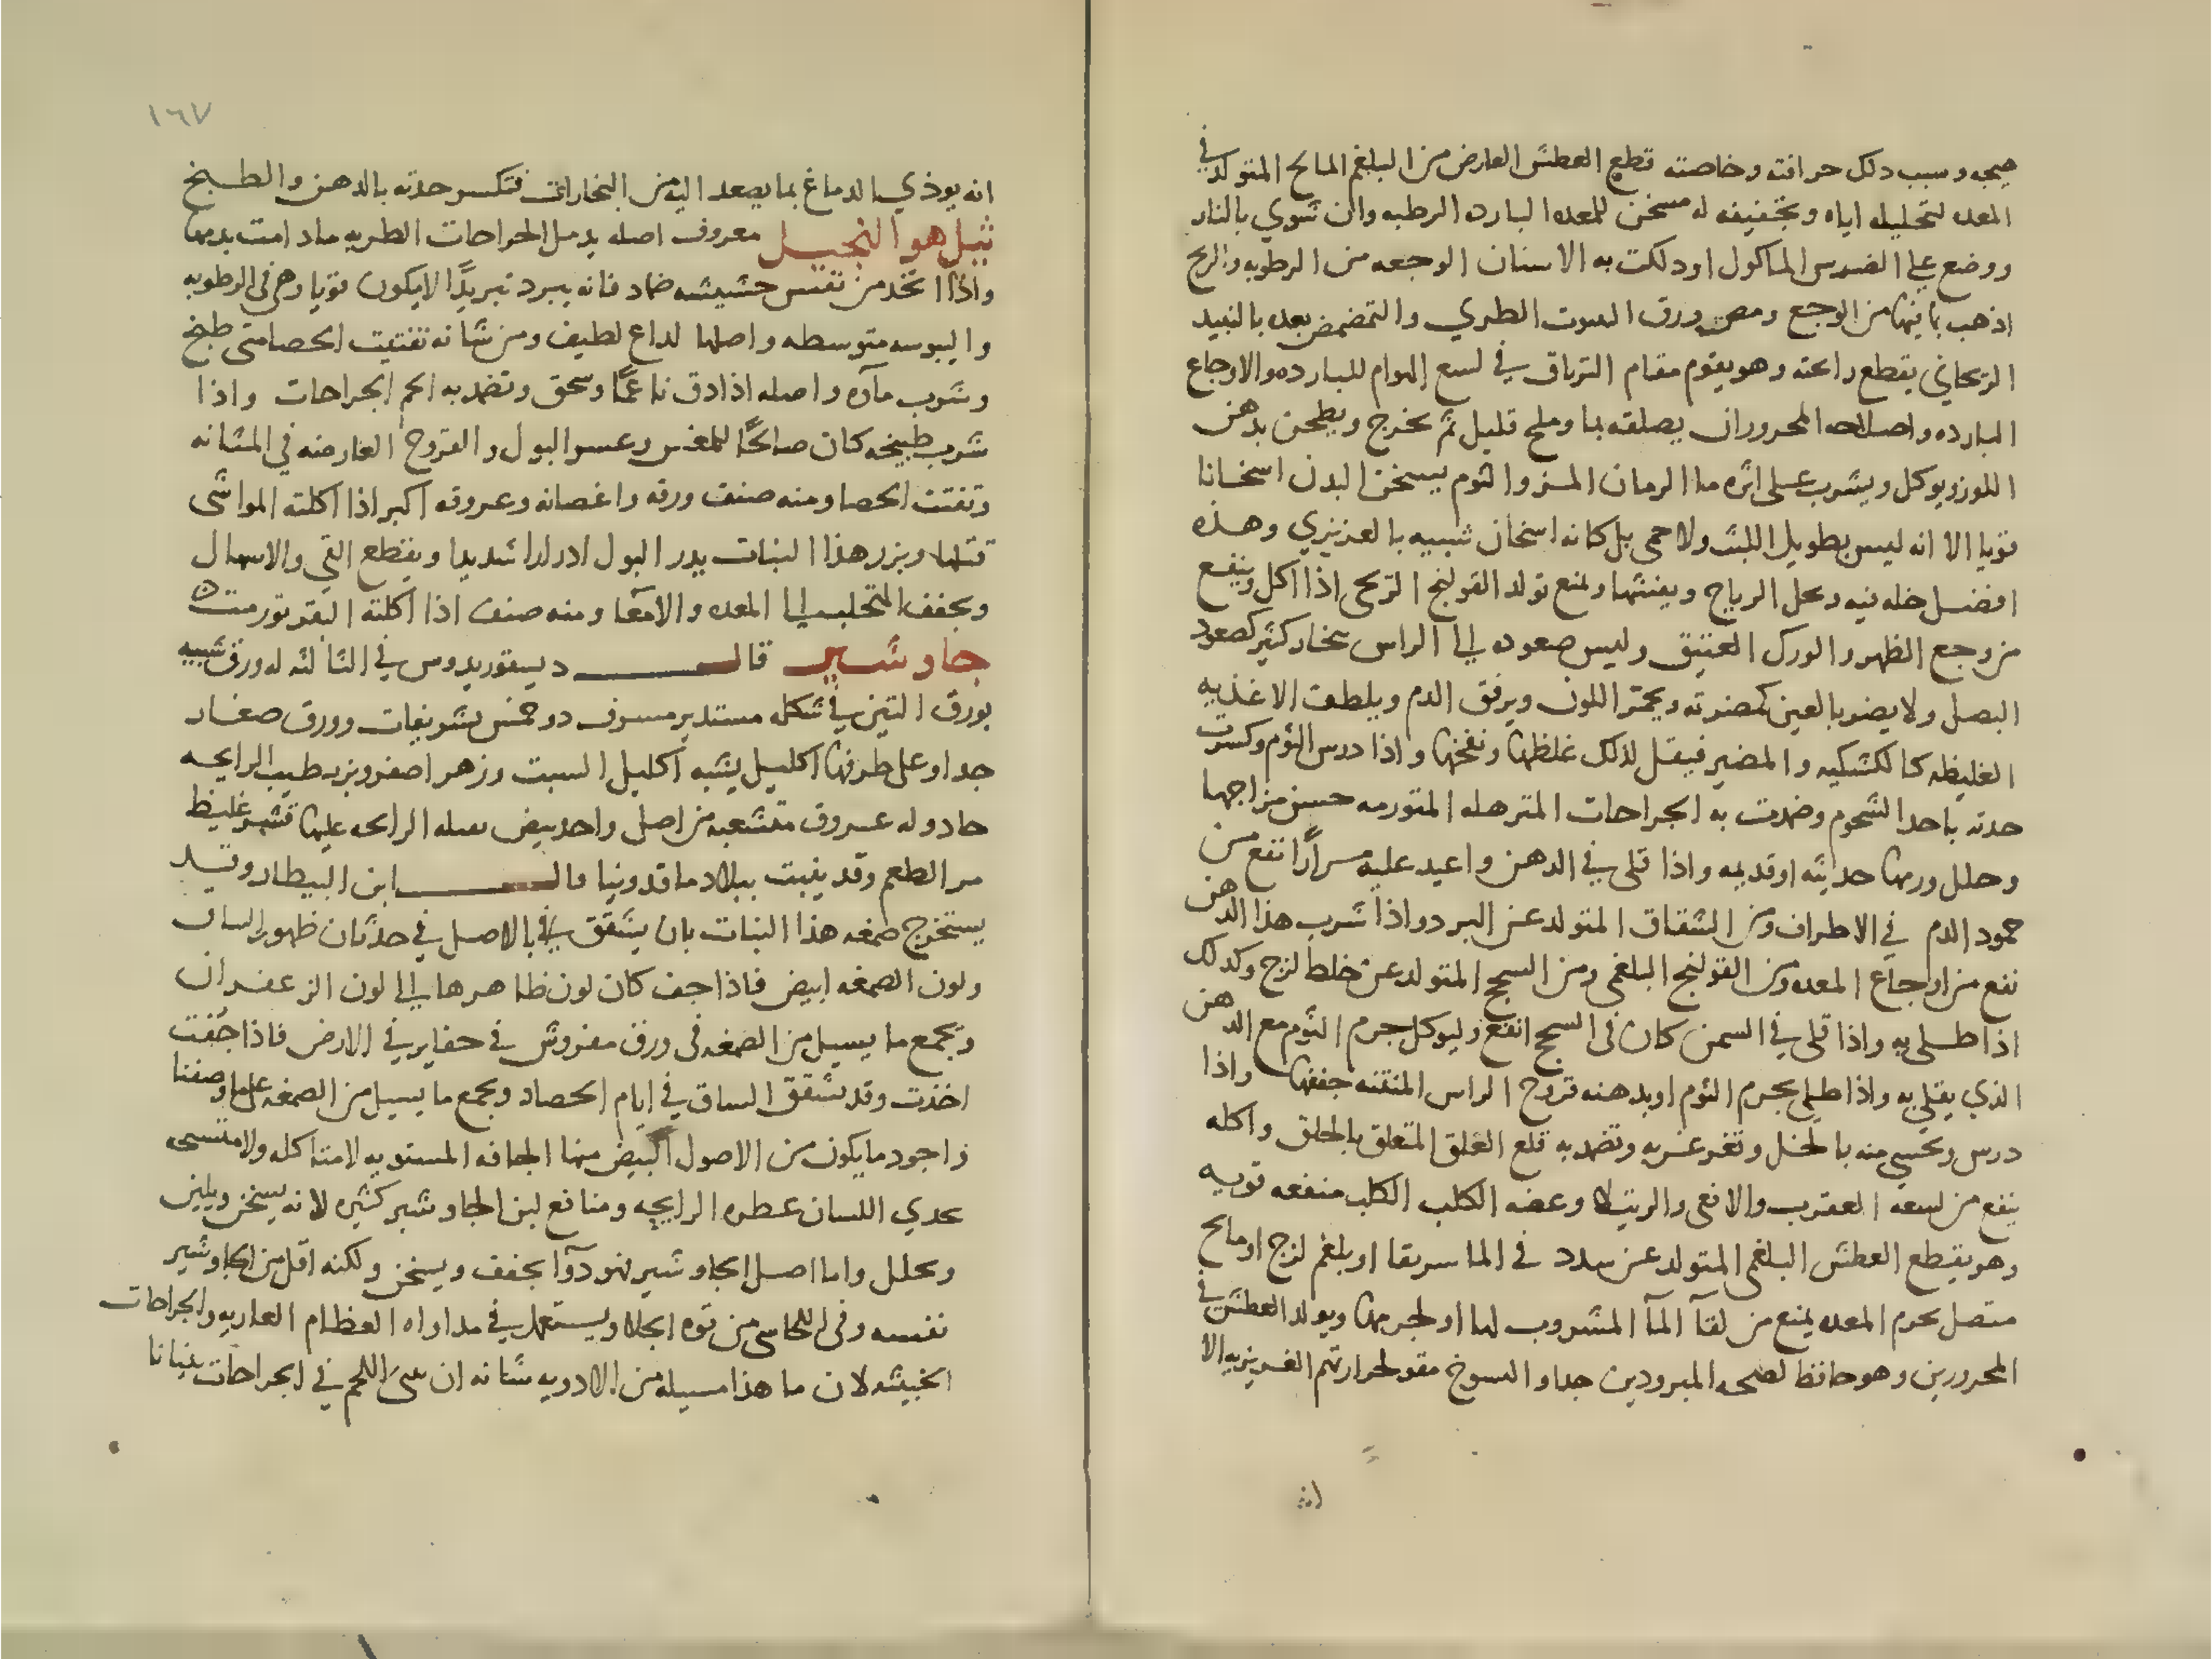 صحه وسبب دلك حرافته وخاصته قطع العطش العارض من البلغم المالح المتولد في
المعده لتحليله اياه وتجفيفه له مسخن للمعده البارده الرطبه وان شوي بالنار
ووضع على الضرس الماكول او دلكت به الاسنان الوجعه من الرطوبه والريح
اذهب بما فيها من الوجع ومص ورق الطري والتمضمض بعده بالنبيد
الريحاني يقطع رايحته وهو يقوم مقام الترياق في لسع الهوام للبارده والاوجاع
البارده واصلاحه المحروران يصلقه بما وملح قليل ثم يخرج ويطجن بدهن
اللوز ويوكل ويشرب على اثره ما الرمان المز والثوم يسخن البدن اسخانا
قويا الا انه ليس بطويل اللبث ولا حمى بل كانه اسخان شبيه بالغريزي وهذه
افضل خله فيه ويحل الرياح ويفشها ويمنع تولد القولنج الريحي اذا اكل وينفع
من وجع الظهر والورك العتيق وليس صعوده الى الراس بخار كثير كصعود
البصل ولا يضر بالعين كمضرته ويحمر اللون ويرقق الدم ويلطف الاغذيه
الغليظه كالكشكيه والمضير فيقل لذلك غلظها ونفخها واذا درس الثوم وكسرت
حدته باحد الشحوم وضمدت به الجراحات المترهله المتورمه حسن مزاجها
وحلل ورمها حديثه او قديمه واذا قلي في الدهن واعيد عليه مرارا نفع من
جمود الدم في الاطراف ومن الشقاق المتولد عن البرد واذا شرب هذا الدهن
نفع من اوجاع المعده ومن القولنج البلغمي ومن السحج المتولد عن خلط لزج وكدلك
اذا طلي به واذا قلي في السمن كان في السحج انفع وليوكل جرم الثوم مع الدهن
الذي يقلى به واذا طلي بجرم الثوم او بدهنه قروح الراس المنتنه جففها واذا
درس وتحسي منه بالخل وتغرغر به وتضمد به قلع العلق المتعلق بالحلق واكله
ينفع من لسعه العقرب والافعى والرتيلا وعضه الكلب الكلب منفعه قويه
وهو يقطع العطش البلغمي المتولد عن سدد في الماسريقا او بلغم لزج او مالح
متصل بجرم المعده يمنع من لقآ المآ المشروب لها او لجرمها ويولد العطش في
المحرورين وهو حافظ لصحه المبرودين جدا والشيوخ مقو لحرارتهم الغريزيه الا
١٦٧
انه يوذي الدماغ بما يصعد اليه من البخارات فتكسر حدته بالدهن والطبخ
ثيل هو النجيل معروف اصله يدمل الجراحات الطريه ما دامت بدمها
واذا اتخد من نفس حشيشه ضماد فانه يبرد تبريدًا لا يكون قويا وهي في الرطوبه
واليبوسه متوسطه واصلها لداع لطيف ومن شانه تفتيت الحصا متى طبخ
وشرب مآوه واصله اذا دق ناعمًا وسحق وتضمد به الحم الجراحات واذا
شرب طبيخه كان صالحًا للمغس وعسر البول والقروح العارضه في المثانه
وتفتت الحصا ومنه صنف ورقه واغصانه وعروقه اكبر اذا اكلته المواشي
قتلها وبزر هذا النبات يدر البول ادرارا شديدا ويقطع القي والاسهال
ويجفف المتحلب الى المعده والامعا ومنه صنف اذا اكلته البقر تورمت
جاوشير قال ديسقوريدوس في الثالثه له ورق شبيه
بورق التين في شكله مستدير مسرف دو خمس تشريفات وورق صغار
جدا وعلى طرفها اكليل يشبه اكليل الشبت وزهر اصفر وبزر طيب الرايحه
حاد وله عروق متشعبه من اصل واحد بيض ثقيله الرايحه عليها قشر غليظ
مر الطعم وقد ينبت ببلاد ماقدونيا قال ابن البيطار وقد
يستخرج صمغه هذا النبات بان يشقق الاصل في حدثان ظهور الساق
ولون الصمغه ابيض فاذا جف كان لون ظاهرها الى لون الزعفران
ويجمع ما يسيل من الصمغه في ورق مفروش في حفاير في الارض فاذا جفت
اخذت وقد يشقق الساق في ايام الحصاد ويجمع ما يسيل من الصمغه على ما وصفنا
واجود ما يكون من الاصول البيض منها الجافه المستويه لا متاكله ولا
يحدي اللسان عطره الرايحه ومنافع لبن الجاوشير كثيره لانه يسخن ويلين
ويحلل واما اصل الجاوشير فهو دوآ يجفف ويسخن ولكنه اقل من الجاوشير
نفسه وفي اللحا شي من قوه الجلا ويستعمل في مداواه العظام العاريه والجراحات
الخبيثه لان ما هذا سبيله من الادويه شانه ان اللحم في الجراحات بنيانا